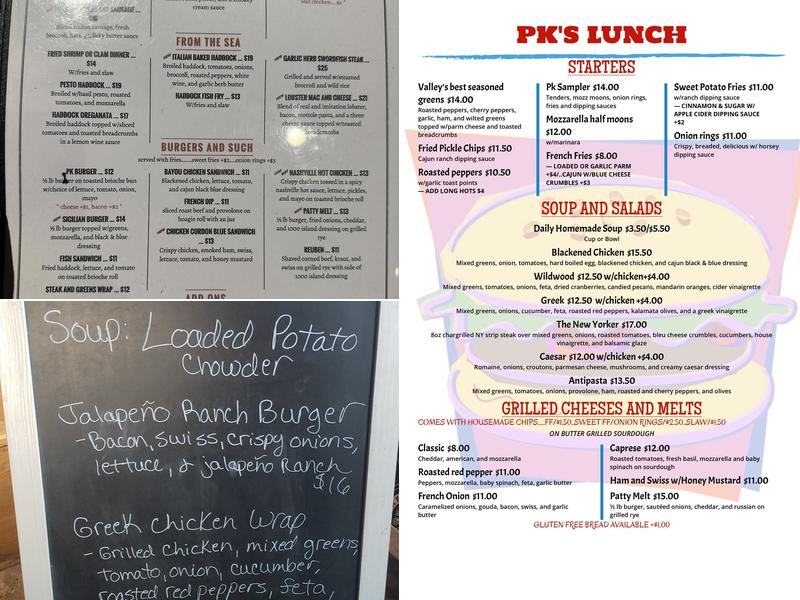 cream sauce
$16
Sliced Italian sausage, fresh
broccoli, ham, garlicky butter sauce
FRIED SHRIMP OR CLAM DINNER ...
$14
W/fries and slaw
PESTO HADDOCK ... $19
Broiled w/basil pesto, roasted
tomatoes, and mozzarella
HADDOCK OREGANATA ... $17
Broiled haddock, tomatoes
and toasted breadcrumbs
in a lemon wine sauce
FROM THE SEA
ITALIAN BAKED HADDOCK ... $19
Broiled haddock, tomatoes, onions,
broccoli, roasted peppers, white
wine, and garlic herb butter
HADDOCK FISH FRY ... $13
W/fries and slaw
GARLIC HERB SWORDFISH STEAK ...
$25
Grilled and served w/steamed
broccoli and wild rice
LOBSTER MAC AND CHEESE ... $21
Blend of real and imitation lobster,
bacon, rotini pasta, and a three
cheese sauce topped w/toasted
breadcrumbs
BURGERS AND SUCH
served with fries......sweet fries +$2....onion rings +$3
PK BURGER ... $12
½ lb burger on toasted brioche bun
w/choice of lettuce, tomato, onion,
mayo
* cheese +$1, bacon +$2 *
SICILIAN BURGER ... $14
½ lb burger topped w/greens,
mozzarella, and black & blue
dressing
FISH SANDWICH ... $11
Fried haddock, lettuce, and tomato
on toasted brioche roll
STEAK AND GREENS WRAP ... $12
BAYOU CHICKEN SANDWICH ... $11
Blackened chicken, lettuce, tomato,
and cajun black blue dressing
FRENCH DIP ... $11
sliced roast beef and provolone on
hoagie roll with au jus
CHICKEN CORDON BLUE SANDWICH
... $13
Crispy chicken, smoked ham, swiss,
lettuce, tomato, and honey mustard
NASHVILLE HOT CHICKEN ... $13
Crispy chicken tossed in a spicy
nashville hot sauce, lettuce, pickles,
and mayo on toasted brioche roll
PATTY MELT ... $13
½ lb burger, fried onions, cheddar,
and 1000 island dressing on grilled
rye
REUBEN ... $11
Shaved corned beef, kraut, and
swiss on grilled rye with side of
1000 island dressing
ADD ONS
Soup: Loaded Potato
Chowder
Jalapeño Ranch Burger
- Bacon, swiss, crispy onions,
lettuce, & jalapeño Ranch
$16
Greek Chicken Wrap
- Grilled Chicken, mixed greens,
tomato, onion, cucumber,
roasted red peppers, feta,
PK'S LUNCH
STARTERS
Valley's best seasoned
greens $14.00
Roasted peppers, cherry peppers,
garlic, ham, and wilted greens
topped w/parm cheese and toasted
breadcrumbs
Fried Pickle Chips $11.50
Cajun ranch dipping sauce
Roasted peppers $10.50
w/garlic toast points
— ADD LONG HOTS $4
Pk Sampler $14.00
Tenders, moz moons, onion rings,
fries and dipping sauces
Mozzarella half moons
$12.00
w/marinara
French Fries $8.00
— LOADED OR GARLIC PARM
+$4/..CAJUN W/BLUE CHEESE
CRUMBLES +$3
Sweet Potato Fries $11.00
w/ranch dipping sauce
— CINNAMON & SUGAR W/
APPLE CIDER DIPPING SAUCE
+$2
Onion rings $11.00
Crispy, breaded, delicious w/ horsey
dipping sauce
SOUP AND SALADS
Daily Homemade Soup $3.50/$5.50
Cup or Bowl
Blackened Chicken $15.50
Mixed greens, onion, tomatoes, hard boiled egg, blackened chicken, and cajun black & blue dressing
Wildwood $12.50 w/chicken+$4.00
Mixed greens, tomatoes, onions, feta, dried cranberries, candied pecans, mandarin oranges, cider vinaigrette
Greek $12.50 w/chicken +$4.00
Mixed greens, onions, cucumber, feta, roasted red peppers, kalamata olives, and a greek vinaigrette
The New Yorker $17.00
8oz chargrilled NY strip steak over mixed greens, onions, roasted tomatoes, bleu cheese crumbles, cucumbers, house
vinaigrette, and balsamic glaze
Caesar $12.00 w/chicken +$4.00
Romaine, onions, croutons, parmesan cheese, mushrooms, and creamy caesar dressing
Antipasta $13.50
Mixed greens, tomatoes, onions, provolone, ham, roasted and cherry peppers, and olives
GRILLED CHEESES AND MELTS
COMES WITH HOUSEMADE CHIPS....FF/$1.50..SWEET FF/ONION RINGS/$2.50..SLAW/$1.50
ON BUTTER GRILLED SOURDOUGH
Classic $8.00
Cheddar, american, and mozzarella
Roasted red pepper $11.00
Peppers, mozzarella, baby spinach, feta, garlic butter
French Onion $11.00
Caramelized onions, gouda, bacon, swiss, and garlic
butter
Caprese $12.00
Roasted tomatoes, fresh basil, mozzarella and baby
spinach on sourdough
Ham and Swiss w/Honey Mustard $11.00
Patty Melt $15.00
½ lb burger, sautéed onions, cheddar, and russian on
grilled rye
GLUTEN FREE BREAD AVAILABLE +$1.00